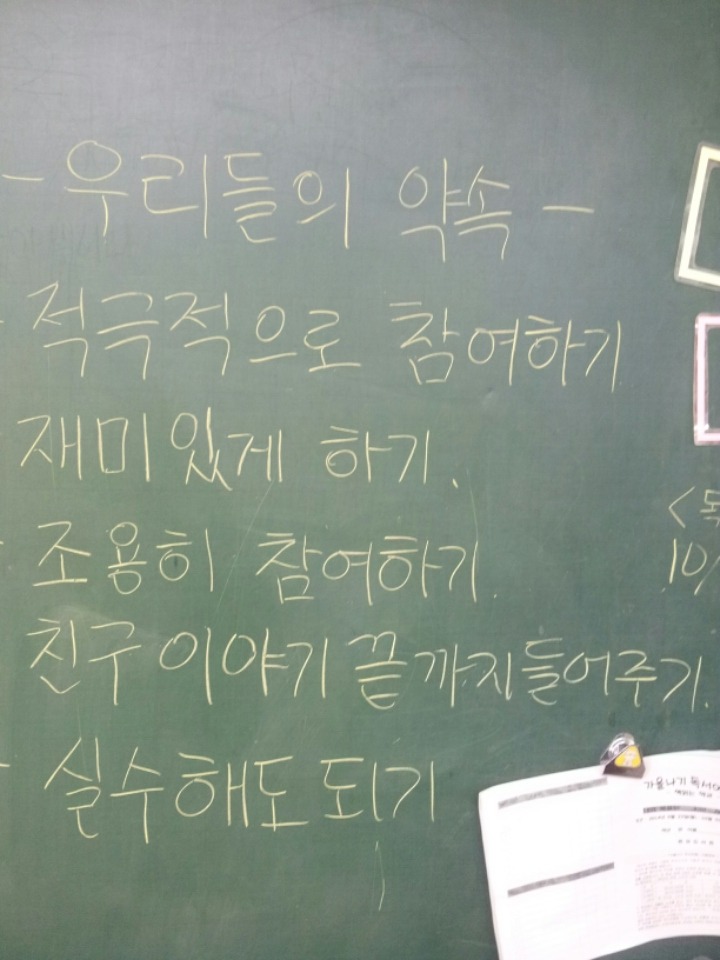 - 우리들의 약속 -
- 적극적으로 참여하기
재미있게 하기.
- 조용히 참여하기.
친구 이야기 끝까지 들어주기.
- 실수해도 되기
<독
10/
가을나기 독서